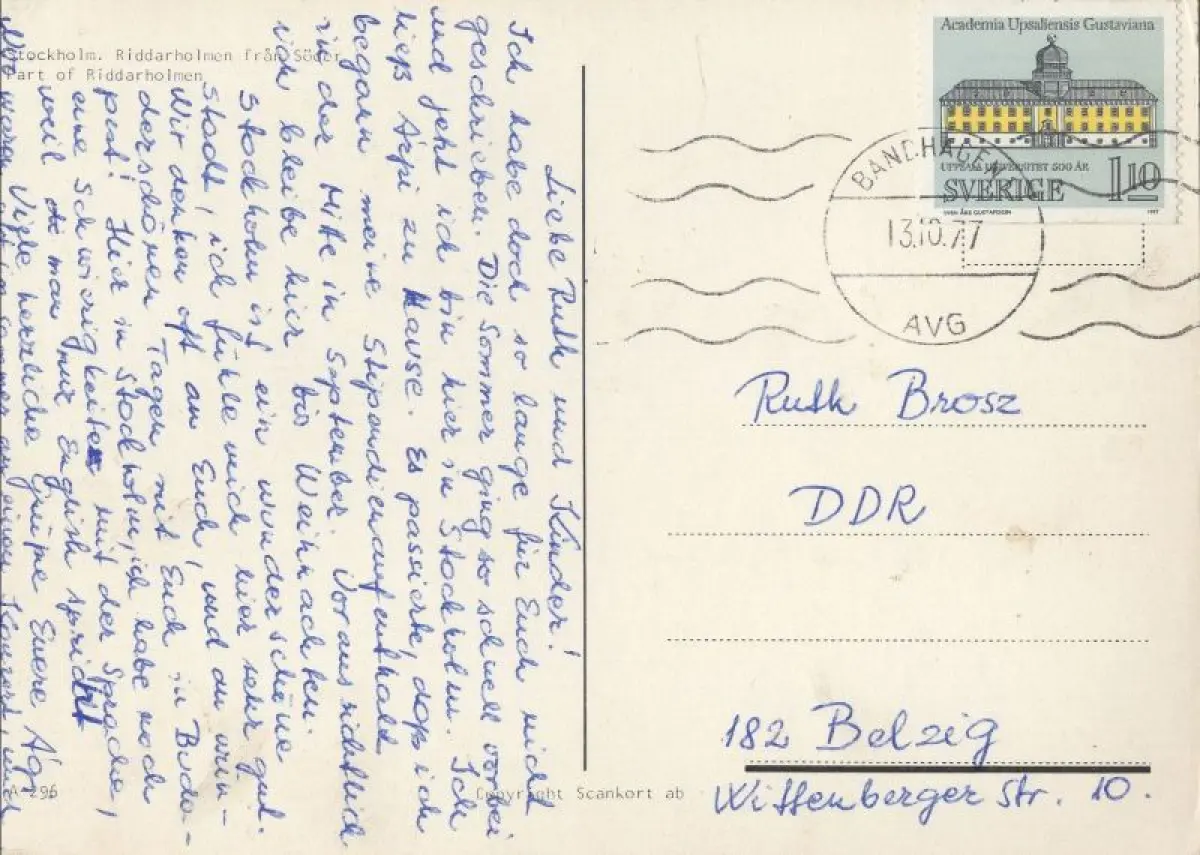 Stockholm. Riddarholmen från Söder
Part of Riddarholmen
Liebe Ruth und Kinder!
Ich habe doch so lange für Euch nicht
geschrieben. Die Sommer ging so schnell vorbei
und jetzt ich bin hier in Stockholm. Ich
ließ Árpi zu Hause. Es passierte, daß ich
begann meine Stipendienaufenthalt
in der Mitte in September. Voraussichtlich
ich bleibe hier bis Weihnachten.
Stockholm ist ein wunderschöne
Stadt, ich fühle mich hier sehr gut.
Wir denken oft an Euch, und die wun-
derschönen Tagen mit Euch in Buda-
pest! Hier in Stockholm, ich habe noch
eine Schwierigkeiten mit der Sprache,
weil man nur Englisch spricht
Viele herzliche Grüße Euere Ági
A-296
Copyright Scankort ab
Academia Upsaliensis Gustaviana
UPPSALA UNIVERSITET 500 ÅR
SVERIGE 1 10
SVEN ÅKE GUSTAFSSON 1977
BANDHAGEN
13.10.77
AVG
Ruth Brosz
DDR
182 Belzig
Wittenberger Str. 10.